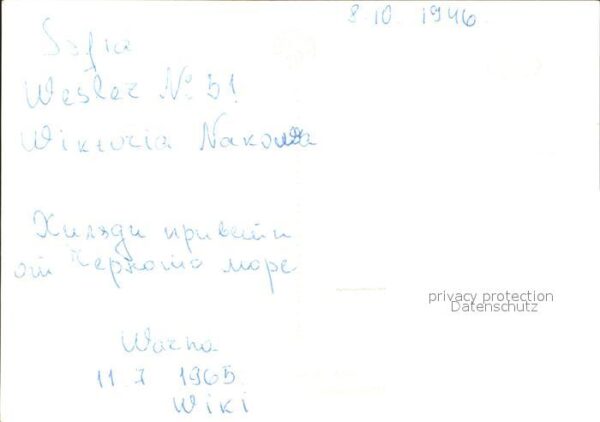 8.10. 1946
Sofia
Weslez № 51
Wiktoria Nakowa
Хиляди привети
от Черното море
Warna
11.7 1965
Wiki
privacy protection
Datenschutz